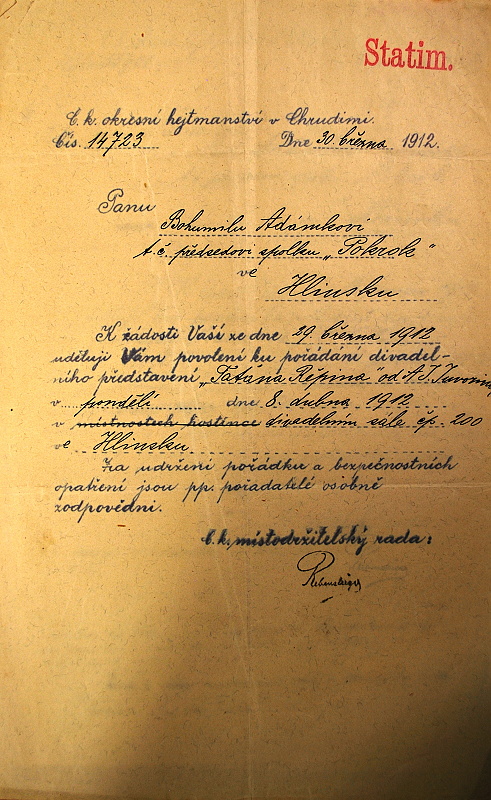 Statim.
C. k. okresní hejtmanství v Chrudimi.
Čís. 14723 Dne 30. března 1912.
Panu
Bohumilu Adámkovi
t. č. předsedovi spolku „Pokrok“
ve
Hlinsku
K žádosti Vaší ze dne 29. března 1912
uděluji Vám povolení ku pořádání divadel-
ního představení „Taťána Rěpina“ od A. J. Suvorina
v pondělí dne 8. dubna 1912
v místnostech hostince divadelním sále čp. 200
ve Hlinsku
Za udržení pořádku a bezpečnostních
opatření jsou pp. pořadatelé osobně
zodpovědni.
C. k. místodržitelský rada: